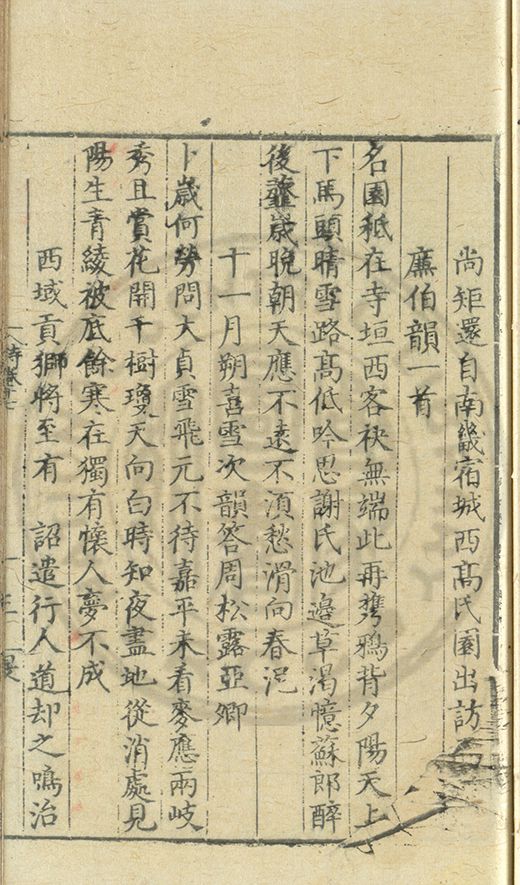 尚矩還自南畿宿城西髙氏園出訪
廉伯韻一首
名園秪在寺垣西客袂無端此再携鴉背夕陽天上
下馬頭晴雪路髙低吟思謝氏池邊草渴憶蘇郎醉
後虀歲晚朝天應不逺不湏愁滑向春泥
十一月朔喜雪次韻答周松露亞卿
卜歲何勞問大貞雪飛元不待嘉平未看麥應兩岐
秀且賞花開千樹瓊天向白時知夜盡地從消處見
陽生青綾被底餘寒在獨有懷人夢不成
西域貢獅將至有 詔遣行人道却之鳴治